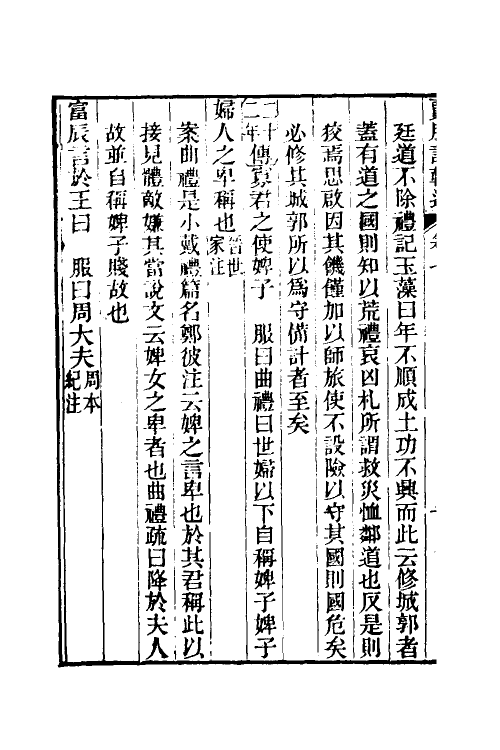 廷道不除禮記玉藻曰年不順成土功不興而此云修城郭者
蓋有道之國則知以荒禮哀凶札所謂救災恤鄰道也反是則
狡焉思啟因其饑僅加以師旅使不設險以守其國則國危矣
必修其城郭所以為守備計者至矣
二十二年傳寡君之使婢子　服曰曲禮曰世婦以下自稱婢子婢子
婦人之卑稱也晉世家注
案曲禮是小戴禮篇名鄭彼注云婢之言卑也於其君稱此以
接見體敵嫌其當說文云婢女之卑者也曲禮疏曰降於夫人
故並自稱婢子賤故也
富辰言於王曰　服曰周大夫周本紀注